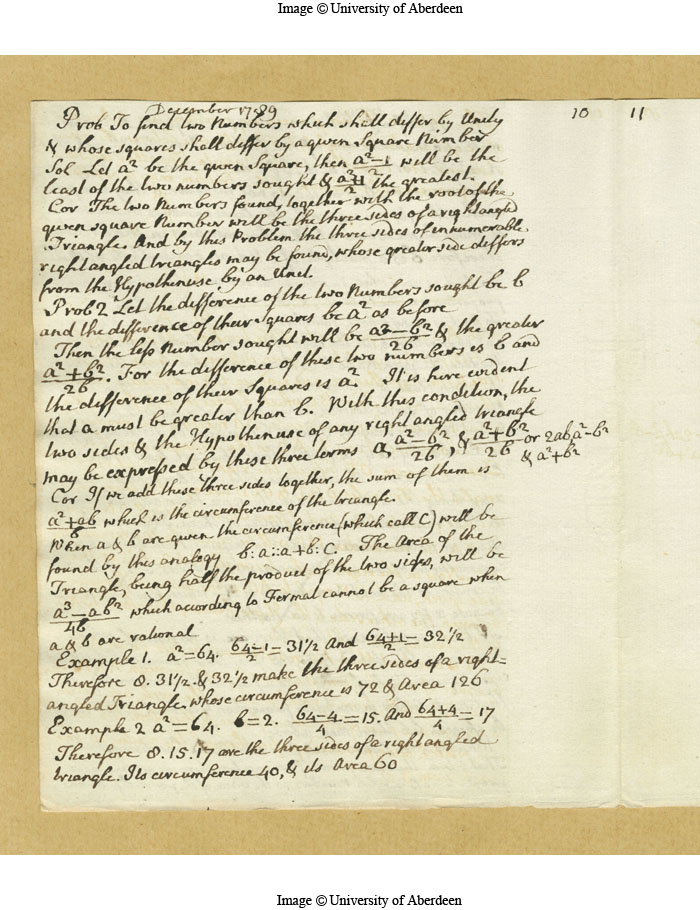 Image © University of Aberdeen
December 1789
10 11
Prob To find two Numbers which shall differ by Unity
& whose squares shall differ by a given Square Number
Sol Let a² be the given Square, then (a²-1)/2 will be the
least of the two numbers sought & (a²+1)/2 the greatest.
Cor The two Numbers found, together with the root of the
given square Number will be the three sides of a right angled
Triangle. And by this Problem the three sides of innumerable
right angled triangles may be found, whose greater side differs
from the Hypothenuse by an Unit.
Prob 2 Let the difference of the two Numbers sought be b
and the difference of their squares be a² as before
Then the less Number sought will be (a²-b²)/2b & the greater
(a²+b²)/2b. For the difference of these two numbers is b and
the difference of their Squares is a². It is here evident
that a must be greater than b. With this condition, the
two sides & the Hypothenuse of any right angled triangle
may be expressed by these three terms a, (a²-b²)/2b, & (a²+b²)/2b or 2ab, a²-b²
& a²+b²
Cor If we add these three sides together, the sum of them is
(a²+ab)/b which is the circumference of the triangle.
When a & b are given the circumference (which call C) will be
found by this analogy b:a::a+b:C. The Area of the
Triangle, being half the product of the two sides, will be
(a³-ab²)/4b which according to Fermat cannot be a square when
a & b are rational
Example 1. a²=64. (64-1)/2=31½ And (64+1)/2=32½
Therefore 8. 31½. & 32½ make the three sides of a right=
angled Triangle whose circumference is 72 & Area 126
Example 2 a²=64. b=2. (64-4)/4=15. And (64+4)/4=17
Therefore 8. 15. 17 are the three sides of a right angled
triangle. Its circumference 40, & its Area 60
Image © University of Aberdeen